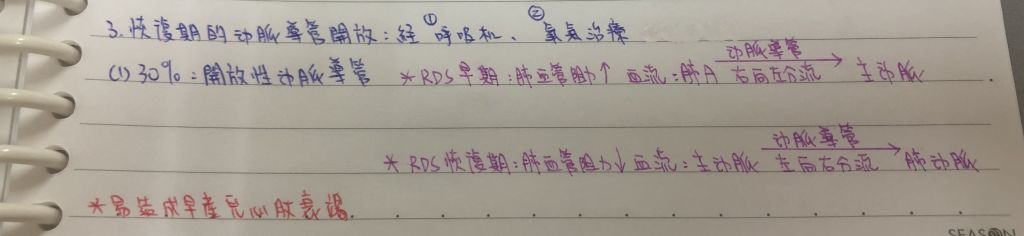 3. 恢復期的动脈導管開放：經①呼吸机、②氧氣治療
(1) 30%：開放性动脈導管 *RDS早期：肺血管阻力↑ 血流：肺A 动脈導管 右向左分流 → 主动脈
*RDS恢復期：肺血管阻力↓ 血流：主动脈 动脈導管 左向右分流 → 肺动脈
*易造成早產兒心脏衰竭.
SEASON